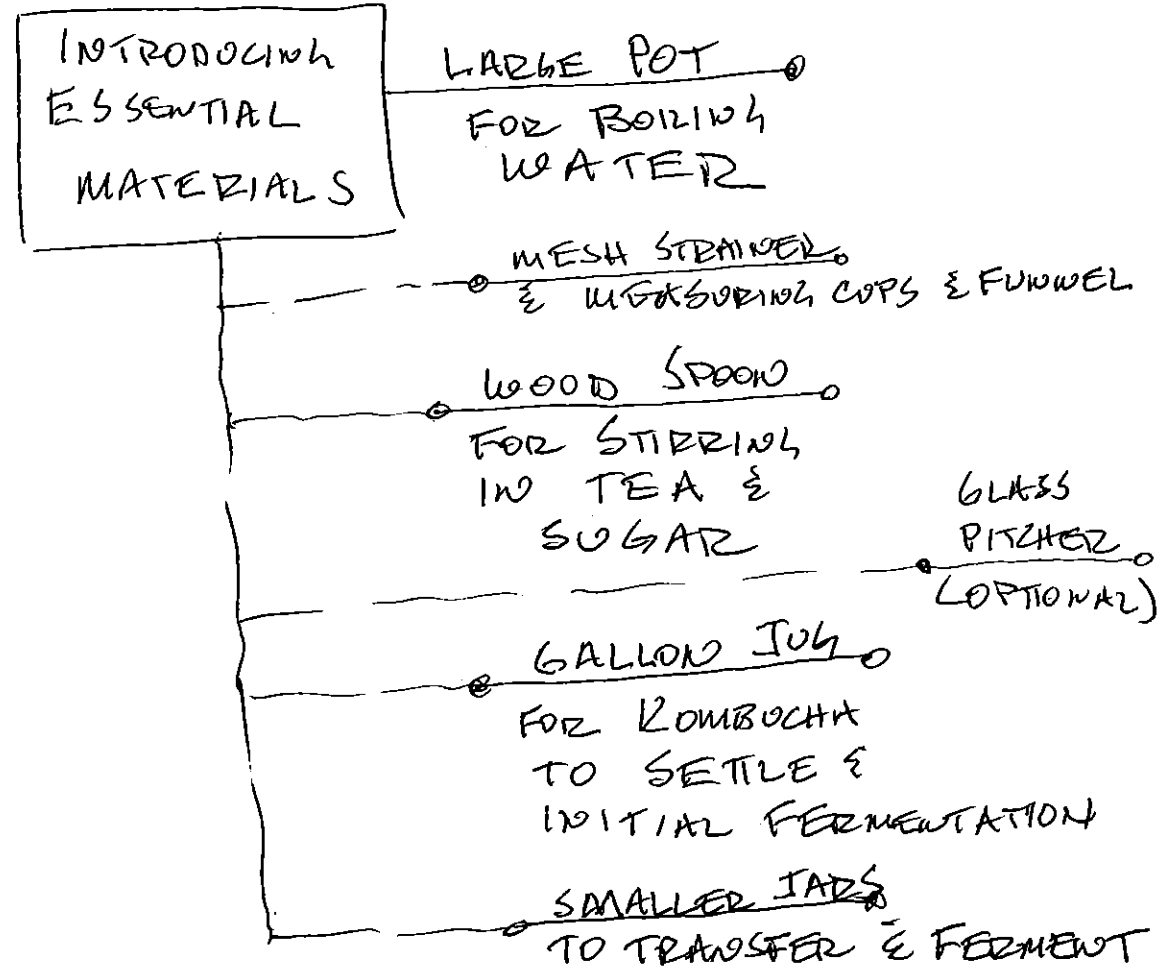 INTRODUCING
ESSENTIAL
MATERIALS
LARGE POT
FOR BOILING
WATER
MESH STRAINER
& MEASURING CUPS & FUNNEL
WOOD SPOON
FOR STIRRING
IN TEA &
SUGAR
GLASS
PITCHER
(OPTIONAL)
GALLON JUG
FOR KOMBUCHA
TO SETTLE &
INITIAL FERMENTATION
SMALLER JARS
TO TRANSFER & FERMENT